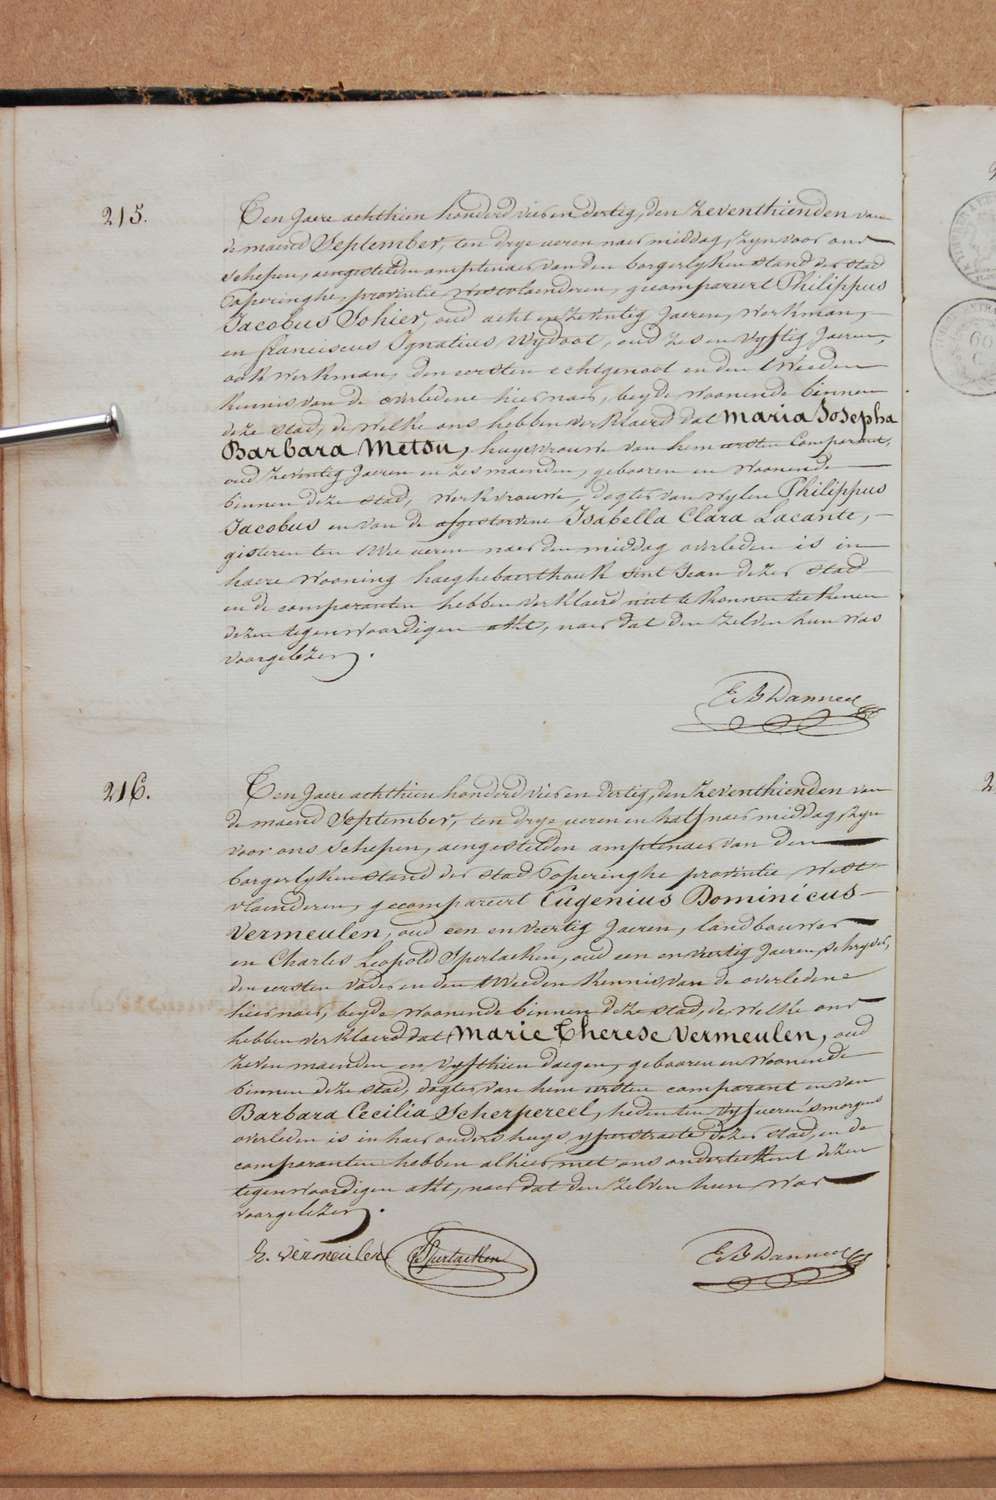 215.
Ten Jaere achthien honderd vier en dertig, den zeventhienden van
de maend September, ten drye ueren naer middag, zyn voor ons
schepen, aengestelden amptenaer van den borgerlyken stand der stad
Poperinghe, provintie Westvlaenderen, gecompareert Philippus
Jacobus Sohier, oud acht en zeventig Jaeren, Werkman,
en franciscus Ignatius Wydoot, oud zes en vyftig Jaeren,
ook Werkman, den eersten echtgenoot en den tweeden
kennis van de overledene hier naer, beyde Woonende binnen
deze stad, de welke ons hebben verklaerd dat Maria Josepha
Barbara Metsu, huysvrouwe van hem eersten Comparant,
oud zeventig Jaeren en zes maenden, gebooren en Woonende
binnen deze stad, Werkvrouwe, dogter van wylen Philippus
Jacobus en van de afgestorvene Isabella Clara Lacante,
gisteren ten twee ueren naer den middag overleden is in
haere Wooning haeghebaerthoek sint Jean dezer stad
en de comparanten hebben verklaerd niet te konnen teekenen
dezen tegenwoordigen akt, naer dat den zelven hun was
voorgelezen.
E B Danneel
216.
Ten Jaere achthien honderd vier en dertig, den zeventhienden van
de maend September, ten drye ueren en half naer middag, zyn
voor ons schepen, aengestelden amptenaer van den
borgerlyken stand der stad Poperinghe provintie West
vlaenderen, gecompareert Eugenius Dominicus
Vermeulen, oud een en veertig Jaeren, landbouwer
en Charles Leopold Sperlaeken, oud een en veertig Jaeren, schryver,
den eersten vader en den tweeden kennis van de overledene
hier naer, beyde woonende binnen deze stad, de welke ons
hebben verklaerd dat Marie Therese Vermeulen, oud
zeven maenden en vyfthien daegen, gebooren en Woonende
binnen deze stad, dogter van hem eersten comparant en van
Barbara Cecilia Scherpereel, heden ten vyf ueren 'smorgens
overleden is in haer ouders huys yperstraete dezer stad, en de
comparanten hebben alhier met ons onderteekent dezen
tegenwoordigen akt, naer dat den zelven hun was
voorgelezen.
E. Vermeulen Sperlaeken E B Danneel